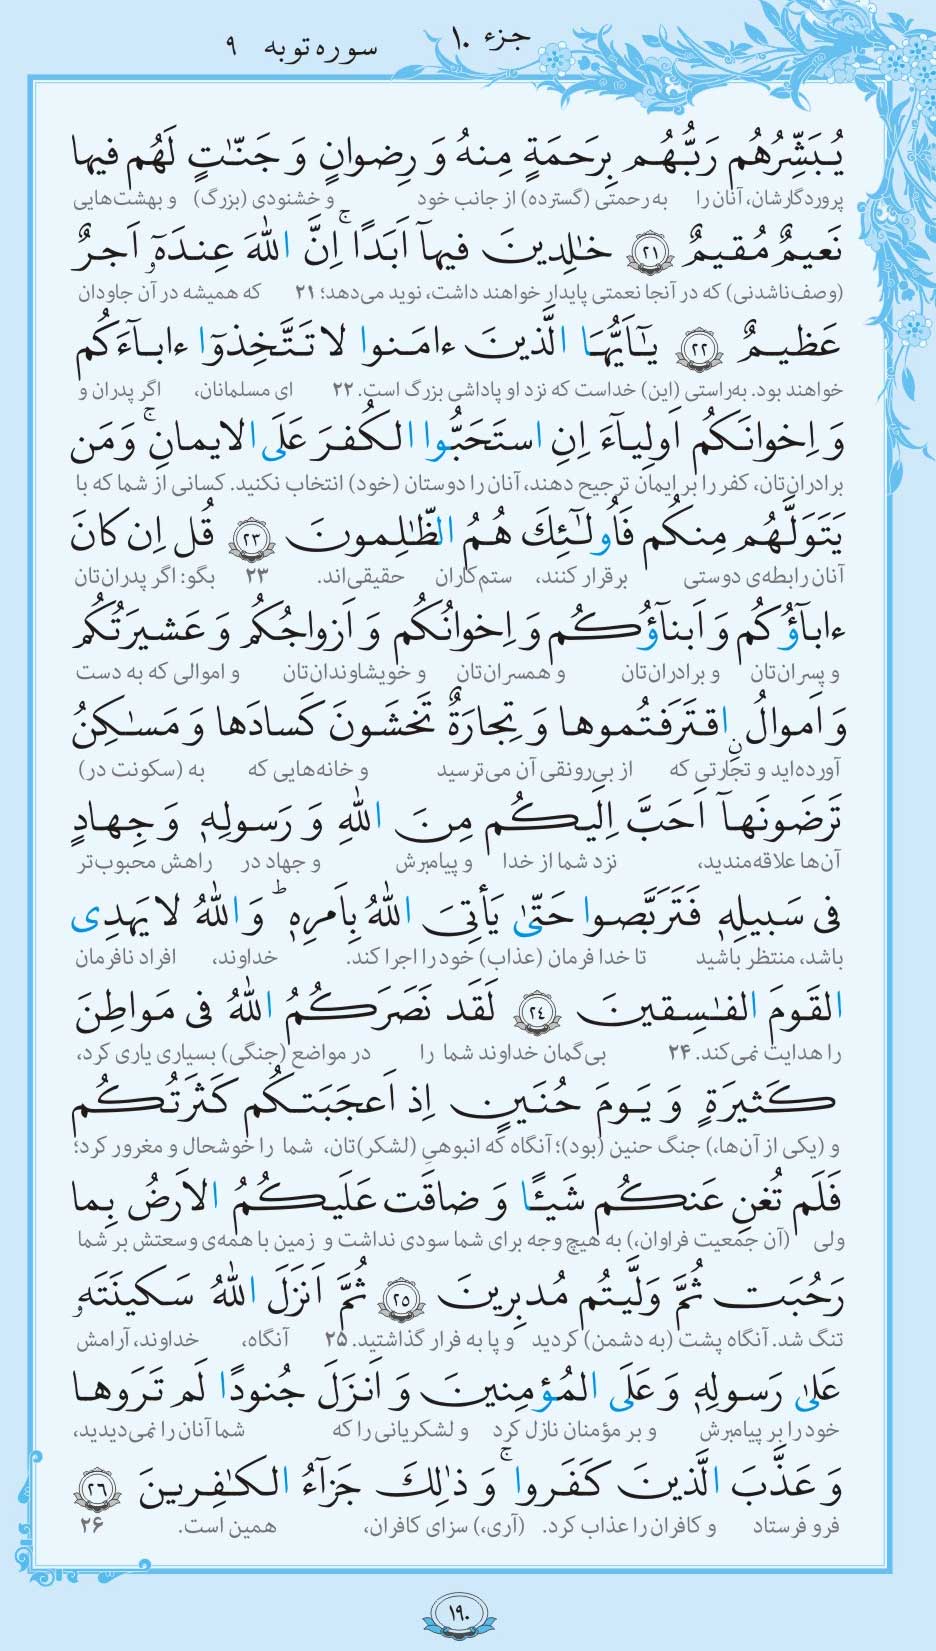 جزء ۱۰
سوره توبه ۹
يُبَشِّرُهُم رَبُّهُم بِرَحمَةٍ مِنهُ وَ رِضوانٍ وَ جَنّٰتٍ لَهُم فيها
پروردگارشان، آنان را به رحمتی (گسترده) از جانب خود و خشنودی (بزرگ) و بهشت‌هایی
نَعيمٌ مُقيمٌ ﴿۲۱﴾ خٰلِدينَ فيهآ اَبَدًاۚ اِنَّ اللّٰهَ عِندَهٗٓ اَجرٌ
(وصف‌ناشدنی) که در آنجا نعمتی پایدار خواهند داشت، نوید می‌دهد؛ ۲۱ که همیشه در آن جاودان
عَظيمٌ ﴿۲۲﴾ يٰٓاَيُّهَا الَّذينَ ءامَنوا لا تَتَّخِذوٓا ءابآءَكُم
خواهند بود. به‌راستی (این) خداست که نزد او پاداشی بزرگ است. ۲۲ ای مسلمانان، اگر پدران و
وَ اِخوانَكُم اَولِيآءَ اِنِ استَحَبُّوا الكُفرَ عَلَى الايمانِۚ وَ مَن
برادران‌تان، کفر را بر ایمان ترجیح دهند، آنان را دوستان (خود) انتخاب نکنید. کسانی از شما که با
يَتَوَلَّهُم مِنكُم فَاُولٰٓئِكَ هُمُ الظّٰلِمونَ ﴿۲۳﴾ قُل اِن كانَ
آنان رابطه‌ی دوستی برقرار کنند، ستم‌کاران حقیقی‌اند. ۲۳ بگو: اگر پدران‌تان
ءابآؤُكُم وَ اَبنآؤُكُم وَ اِخوانُكُم وَ اَزواجُكُم وَ عَشيرَتُكُم
و پسران‌تان و برادران‌تان و همسران‌تان و خویشاوندان‌تان و اموالی که به دست
وَ اَموالٌ ِۨاقتَرَفتُموها وَ تِجارَةٌ تَخشَونَ كَسادَها وَ مَسٰكِنُ
آورده‌اید و تجارتی که از بی‌رونقی آن می‌ترسید و خانه‌هایی که به (سکونت در)
تَرضَونَهآ اَحَبَّ اِلَيكُم مِنَ اللّٰهِ وَ رَسولِهٖ وَ جِهادٍ
آن‌ها علاقه‌مندید، نزد شما از خدا و پیامبرش و جهاد در راهش محبوب‌تر
فى سَبيلِهٖ فَتَرَبَّصوا حَتّىٰ يَأتِىَ اللّٰهُ بِاَمرِهٖؕ وَ اللّٰهُ لا يَهدِى
باشد، منتظر باشید تا خدا فرمان (عذاب) خود را اجرا کند. خداوند، افراد نافرمان
القَومَ الفٰسِقينَ ﴿۲۴﴾ لَقَد نَصَرَكُمُ اللّٰهُ فى مَواطِنَ
را هدایت نمی‌کند. ۲۴ بی‌گمان خداوند شما را در مواضع (جنگی) بسیاری یاری کرد،
كَثيرَةٍ وَ يَومَ حُنَينٍ اِذ اَعجَبَتكُم كَثرَتُكُم
و (یکی از آن‌ها،) جنگ حنین (بود)؛ آنگاه که انبوهیِ (لشکر)تان، شما را خوشحال و مغرور کرد؛
فَلَم تُغنِ عَنكُم شَيـًٔا وَ ضاقَت عَلَيكُمُ الاَرضُ بِما
ولی (آن جمعیت فراوان،) به هیچ وجه برای شما سودی نداشت و زمین با همه‌ی وسعتش بر شما
رَحُبَت ثُمَّ وَلَّيتُم مُدبِرينَ ﴿۲۵﴾ ثُمَّ اَنزَلَ اللّٰهُ سَكينَتَهٗ
تنگ شد. آنگاه پشت (به دشمن) کردید و پا به فرار گذاشتید. ۲۵ آنگاه، خداوند، آرامش
عَلىٰ رَسولِهٖ وَ عَلَى المُؤمِنينَ وَ اَنزَلَ جُنودًا لَم تَرَوها
خود را بر پیامبرش و بر مؤمنان نازل کرد و لشکریانی را که شما آنان را نمی‌دیدید،
وَ عَذَّبَ الَّذينَ كَفَرواۚ وَ ذٰلِكَ جَزآءُ الكٰفِرينَ ﴿۲۶﴾
فرو فرستاد و کافران را عذاب کرد. (آری،) سزای کافران، همین است. ۲۶
۱۹۰